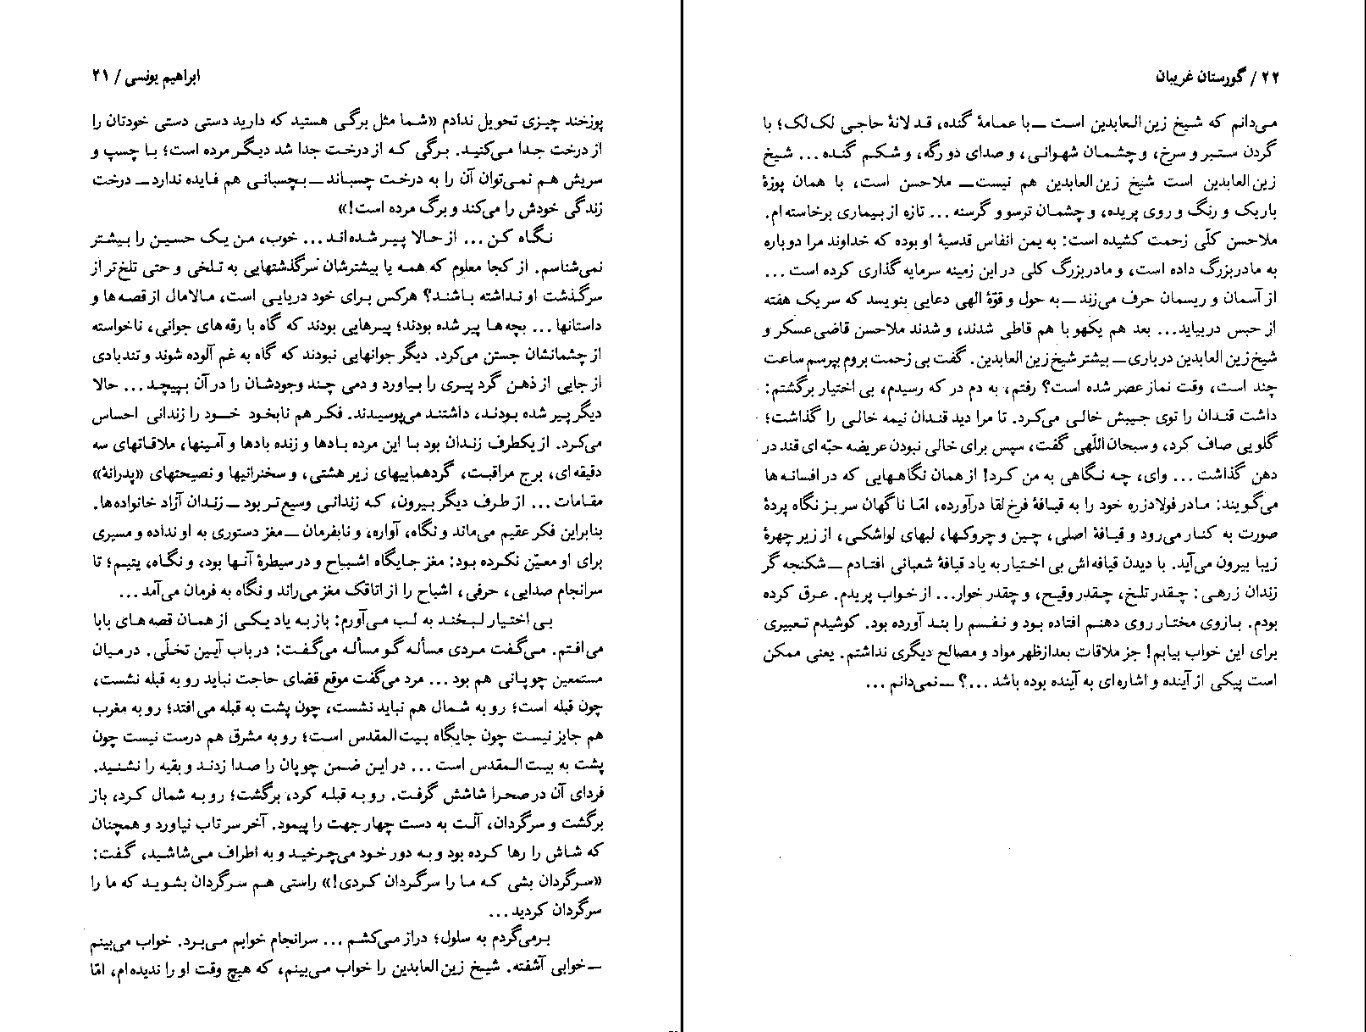 ابراهیم یونسی / ۲۱
پوزخند چیزی تحویل ندادم «شما مثل برگی هستید که دارید دستی دستی خودتان را
از درخت جدا می‌کنید. برگی که از درخت جدا شد دیگر مرده است؛ با چسب و
سریش هم نمی‌توان آن را به درخت چسباند ــ بچسبانی هم فایده ندارد ــ درخت
زندگی خودش را می‌کند و برگ مرده است!»
نگاه کن ... از حالا پیر شده‌اند ... خوب، من یک حسین را بیشتر
نمی‌شناسم. از کجا معلوم که همه یا بیشترشان سرگذشتهایی به تلخی و حتی تلخ‌تر از
سرگذشت او نداشته باشند؟ هرکس برای خود دریایی است، مالامال از قصه‌ها و
داستانها ... بچه‌ها پیر شده بودند؛ پیرهایی بودند که گاه با رقه‌های جوانی، ناخواسته
از چشمانشان جستن می‌کرد. دیگر جوانهایی نبودند که گاه به غم آلوده شوند و تندبادی
از جایی از ذهن گرد پیری را بیاورد و دمی چند وجودشان را در آن بپیچد ... حالا
دیگر پیر شده بودند، داشتند می‌پوسیدند. فکر هم نابخود خود را زندانی احساس
می‌کرد. از یکطرف زندان بود با این مرده بادها و زنده بادها و آمینها، ملاقاتهای سه
دقیقه‌ای، برج مراقبت، گردهماییهای زیر هشتی، و سخنرانیها و نصیحتهای «پدرانۀ»
مقامات ... از طرف دیگر بیرون، که زندانی وسیع‌تر بود ــ زندان آزاد خانواده‌ها.
بنابراین فکر عقیم می‌ماند و نگاه، آواره، و نابفرمان ــ مغز دستوری به او نداده و مسیری
برای او معیّن نکرده بود: مغز جایگاه اشباح و در سیطرۀ آنها بود، و نگاه، یتیم؛ تا
سرانجام صدایی، حرفی، اشباح را از اتاقک مغز می‌راند و نگاه به فرمان می‌آمد ...
بی اختیار لبخند به لب می‌آورم: باز به یاد یکی از همان قصه‌های بابا
می‌افتم. می‌گفت مردی مسأله گو مسأله می‌گفت: در باب آیین تخلّی. در میان
مستمعین چوپانی هم بود ... مرد می‌گفت موقع قضای حاجت نباید رو به قبله نشست،
چون قبله است؛ رو به شمال هم نباید نشست، چون پشت به قبله می‌افتد؛ رو به مغرب
هم جایز نیست چون جایگاه بیت المقدس است؛ رو به مشرق هم درست نیست چون
پشت به بیت المقدس است ... در این ضمن چوپان را صدا زدند و بقیه را نشنید.
فردای آن در صحرا شاشش گرفت. رو به قبله کرد، برگشت؛ رو به شمال کرد، باز
برگشت و سرگردان، آلت به دست چهار جهت را پیمود. آخر سر تاب نیاورد و همچنان
که شاش را رها کرده بود و به دور خود می‌چرخید و به اطراف می‌شاشید، گفت:
«سرگردان بشی که ما را سرگردان کردی!» راستی هم سرگردان بشوید که ما را
سرگردان کردید ...
برمی‌گردم به سلول؛ دراز می‌کشم ... سرانجام خوابم می‌برد. خواب می‌بینم
ــ خوابی آشفته. شیخ زین‌العابدین را خواب می‌بینم، که هیچ وقت او را ندیده‌ام، امّا
۲۲ / گورستان غریبان
می‌دانم که شیخ زین العابدین است ــ با عمامۀ گنده، قد لانۀ حاجی لک لک؛ با
گردن ستبر و سرخ، و چشمان شهوانی، و صدای دو رگه، و شکم گنده ... شیخ
زین‌العابدین است شیخ زین‌العابدین هم نیست ــ ملاحسن است، با همان پوزۀ
باریک و رنگ و روی پریده، و چشمان ترسو و گرسنه ... تازه از بیماری برخاسته‌ام.
ملاحسن کلّی زحمت کشیده است: به یمن انفاس قدسیۀ او بوده که خداوند مرا دوباره
به مادربزرگ داده است، و مادربزرگ کلی در این زمینه سرمایه گذاری کرده است ...
از آسمان و ریسمان حرف می‌زند ــ به حول و قوّۀ الهی دعایی بنویسد که سر یک هفته
از حبس دربیاید ... بعد هم یکهو با هم قاطی شدند، و شدند ملاحسن قاضی عسکر و
شیخ زین العابدین درباری ــ بیشتر شیخ زین العابدین. گفت بی زحمت بروم بپرسم ساعت
چند است، وقت نماز عصر شده است؟ رفتم، به دم در که رسیدم، بی اختیار برگشتم:
داشت قندان را توی جیبش خالی می‌کرد. تا مرا دید قندان نیمه خالی را گذاشت؛
گلویی صاف کرد، و سبحان اللّهی گفت، سپس برای خالی نبودن عریضه حبّه‌ای قند در
دهن گذاشت ... وای، چه نگاهی به من کرد! از همان نگاههایی که در افسانه‌ها
می‌گویند: مادر فولادزره خود را به قیافۀ فرخ لقا درآورده، امّا ناگهان سر بزنگاه پردۀ
صورت به کنار می‌رود و قیافۀ اصلی، چین و چروکها، لبهای لواشکی، از زیر چهرۀ
زیبا بیرون می‌آید. با دیدن قیافه‌اش بی اختیار به یاد قیافۀ شعبانی افتادم ــ شکنجه گر
زندان زرهی: چقدر تلخ، چقدر وقیح، و چقدر خوار... از خواب پریدم. عرق کرده
بودم. بازوی مختار روی دهنم افتاده بود و نفسم را بند آورده بود. کوشیدم تعبیری
برای این خواب بیابم! جز ملاقات بعدازظهر مواد و مصالح دیگری نداشتم. یعنی ممکن
است پیکی از آینده و اشاره‌ای به آینده بوده باشد ...؟ ــ نمی‌دانم ...